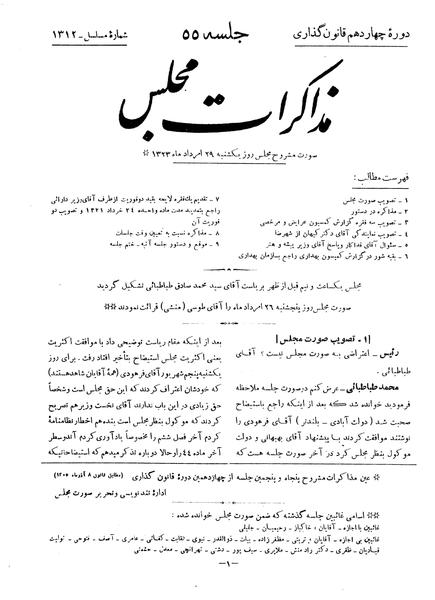 دورهٔ چهاردهم قانون گذاری
جلسه ۵۵
شمارهٔ مسلسل - ۱۳۱۲
مذاکرات مجلس
صورت مشروح مجلس روز یکشنبه ۲۹ امرداد ماه ۱۳۲۳ *
فهرست مطالب:
۱ - تصویب صورت مجلس
۲ - مذاکره در دستور
۳ - تصویب سه فقره گزارش کمیسیون عرایض و مرخصی
۴ - تصویب نمایندگی آقای دکتر کیهان از شهرضا
۵ - سئوال آقای فداکار و پاسخ آقای وزیر پیشه و هنر
۶ - بقیه شور در گزارش کمیسیون بهداری راجع بسازمان بهداری
۷ - تقدیم یکفقره لایحه بقید دو فوریت از طرف آقای وزیر دارائی
راجع بتمدید مدت ماده واحده ۲۴ خرداد ۱۳۲۱ و تصویب دو
فوریت آن
۸ - مذاکره نسبت به تعیین وقت جلسات
۹ - موقع و دستور جلسه آتیه - ختم جلسه
مجلس یکساعت و نیم قبل از ظهر بریاست آقای سید محمد صادق طباطبائی تشکیل گردید
صورت مجلس روز پنجشنبه ۲۶ امرداد ماه را آقای طوسی (منشی) قرائت نمودند *
[۱ - تصویب صورت مجلس]
رئیس - اعتراضی به صورت مجلس نیست؟ آقای
طباطبائی.
محمد طباطبائی - عرض کنم در صورت جلسه ملاحظه
فرمودید خوانده شد که بعد از اینکه راجع باستیضاح
صحبت شد (دولت آبادی - بلندتر) آقای فرهودی را
نوشتند موافقت کردند با پیشنهاد آقای بهبهانی و دولت
موکول بنظر مجلس کرد در آخر صورت جلسه هست که
بعد از اینکه مقام ریاست توضیحی داد با موافقت اکثریت
یعنی اکثریت مجلس استیضاح بتأخیر افتاد رفت. برای روز
یکشنبه پنجم شهریور آقای فرهودی (همهٔ آقایان شاهد هستند)
که خودشان اعتراف کردند که این حق مجلس است و شخصاً
حق زیادی در این باب ندارند آقای نخست وزیر هم تصریح
کردند که موکول بنظر مجلس است بنده هم اخطار نظامنامهٔ
کردم آخر فصل ششم را خصوصاً یادآوری کردم آندو سطر
آخر ماده ۴۴ را و حالا دوباره تذکر میدهم که استیضاحاتیکه
* عین مذاکرات مشروح پنجاه و پنجمین جلسه از چهاردهمین دورهٔ قانون گذاری (مطابق قانون ۸ آذر ماه ۱۳۰۵)
ادارهٔ تند نویسی و تحریر صورت مجلس
* اسامی غائبین جلسه گذشته که ضمن صورت مجلس خوانده شده:
غائبین با اجازه - آقایان: خاکباز - رحیمیان - جلیلی
غائبین بی اجازه - آقایان: تربتی - مظفرزاده - بیات - ذوالقدر - نبوی - نقابت - کفائی - عامری - آصف - فتوحی - تولیت
قبادیان - ظفری - دکتر راد منش - ملایری - سیف پور - دشتی - تهرانچی - معدل - حشمتی
-۱-